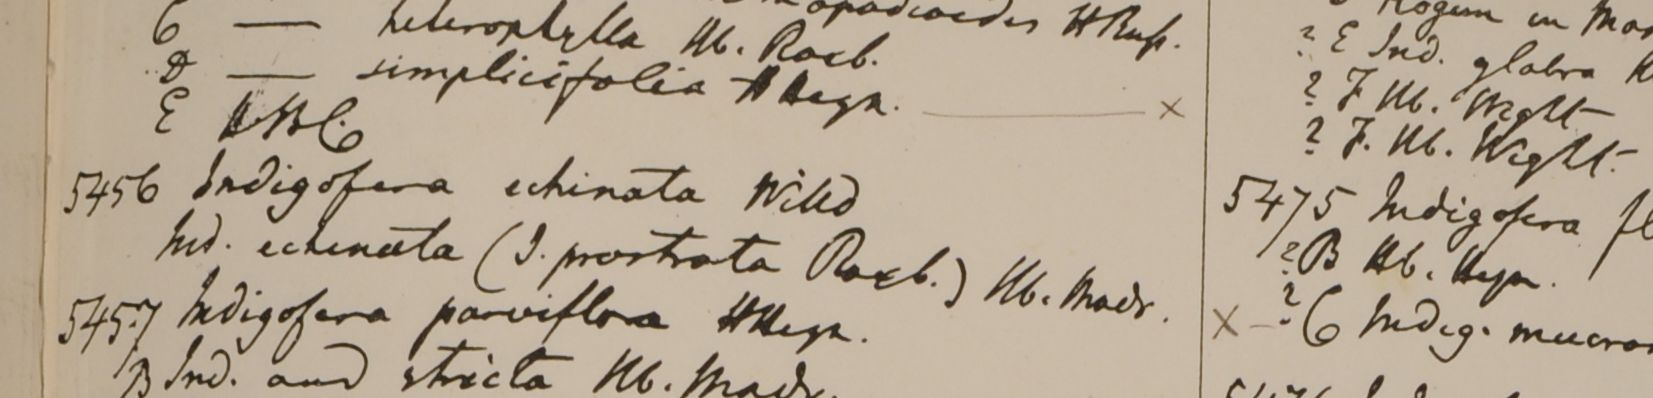 C — heterophylla Hb. Roxb.
D — simplicifolia HHeyn. ——— ×
E HBC
5456 Indigofera echinata Willd
Ind. echinata (I. prostrata Roxb.) Hb. Madr.
5457 Indigofera parviflora HHeyn.
B Ind. and stricta Hb. Madr.
? E Ind. glabra
? F Hb. Wight
? F. Hb. Wight.
5475 Indigofera
? B Hb. Heyn.
× — ? C Indig.